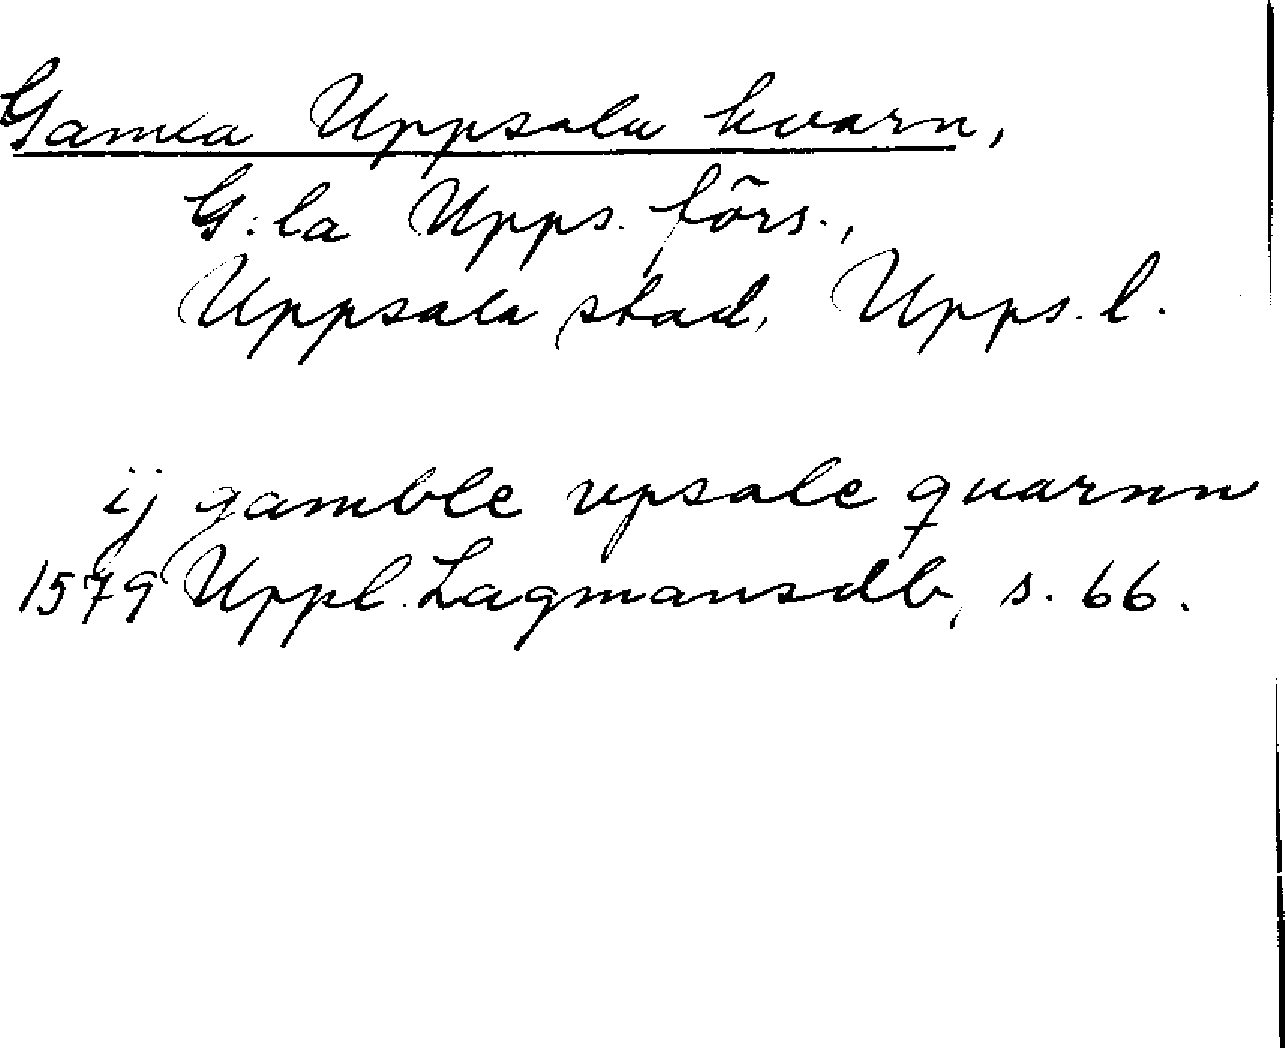 Gamla Uppsala kvarn,
G:la Upps. förs.,
Uppsala stad, Upps. l.
ij gamble vpsale quarnn
1579 Uppl. Lagmansdb, s. 66.